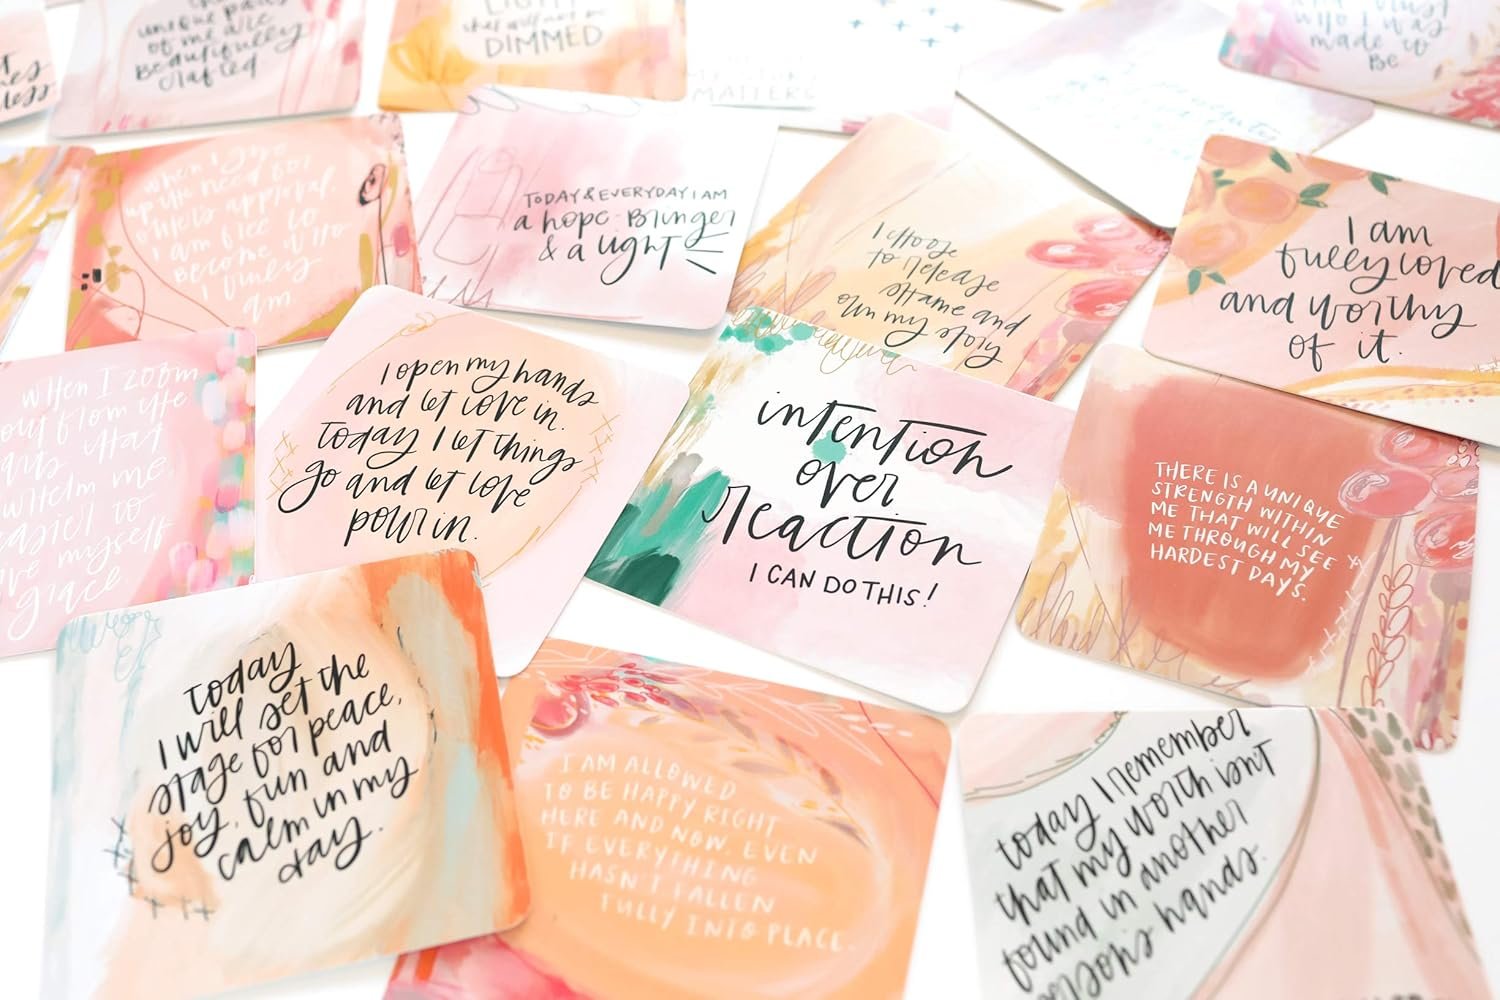 unique parts
of me are
Beautifully
crafted
LIGHT
that will not be
DIMMED
MATTERS
who I was
made to
Be
when I give
up the need for
others approval,
I am free to
Become who
I truly
am
TODAY & EVERYDAY I AM
a hope-Bringer
& a light
I choose
to release
shame and
own my story
I am
fully loved
and worthy
of it.
when I zoom
out from the
parts that
overwhelm me,
easier to
myself
grace.
I open my hands
and let love in.
Today I let things
go and let love
pour in.
intention
over
reaction
I CAN DO THIS!
THERE IS A UNIQUE
STRENGTH WITHIN
ME THAT WILL SEE
ME THROUGH MY
HARDEST DAYS.
today
I will set the
stage for peace,
joy, fun and
calm in my
day.
I AM ALLOWED
TO BE HAPPY RIGHT
HERE AND NOW, EVEN
IF EVERYTHING
HASN'T FALLEN
FULLY INTO PLACE.
today I remember
that my worth isn't
found in another
person's hands.